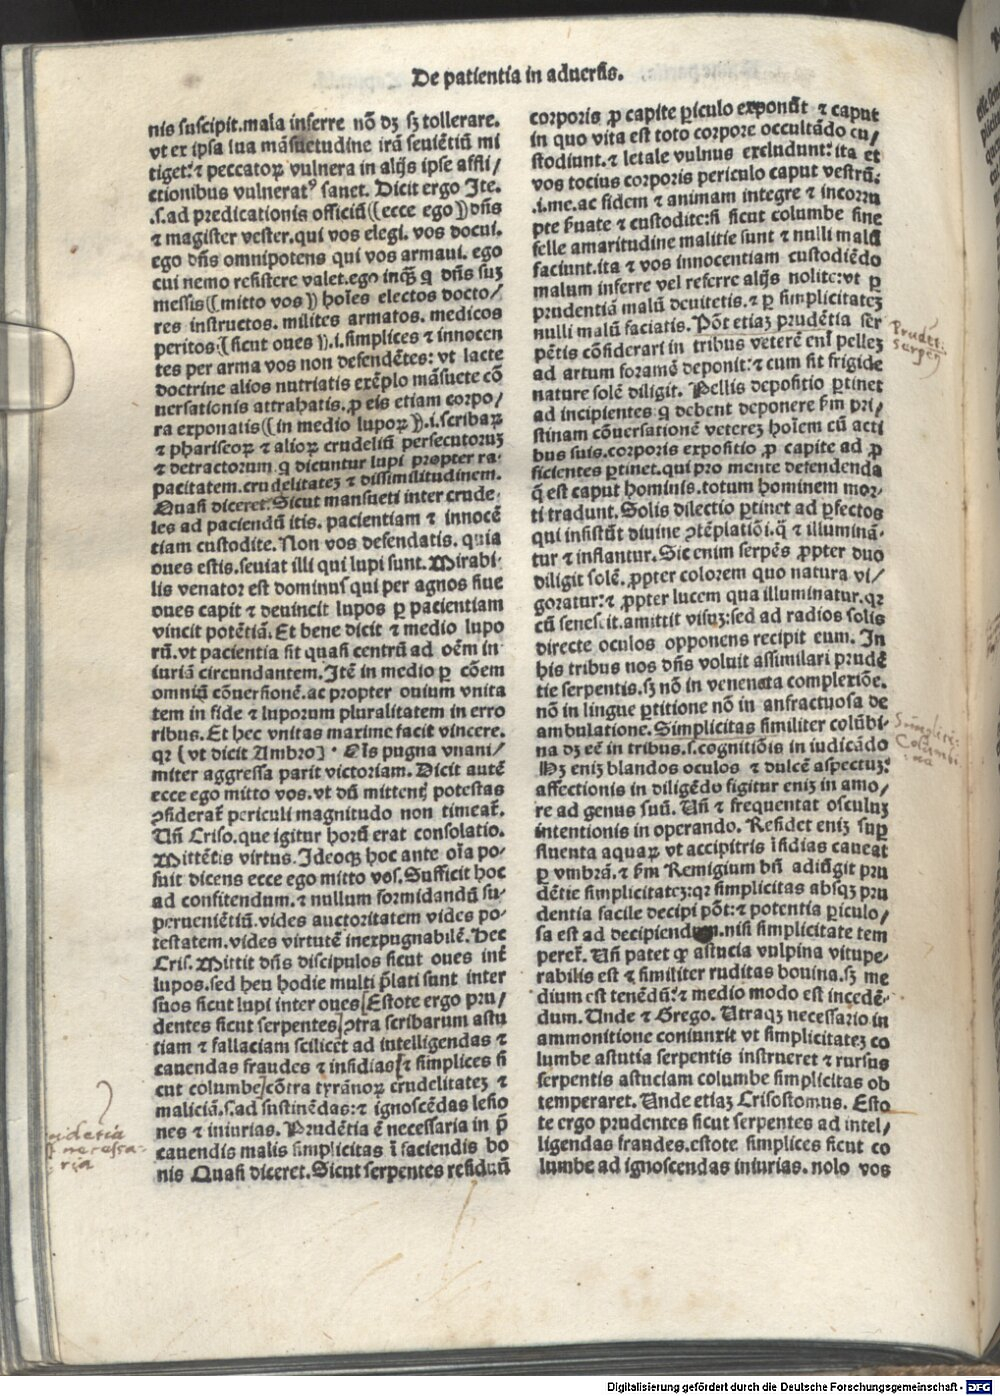 De patientia in aduersis.
nis suscipit.mala inferre nō dꝫ sꝫ tollerare.
vt ex ipsa sua māsuetudine irā seuiētiū mi
tiget:⁊ peccatoꝝ vulnera in alijs ipse affli/
ctionibus vulneratꝰ sanet. Dicit ergo Ite.
.s.ad predicationis officiū(ecce ego)dn̄s
⁊ magister vester.qui vos elegi. vos docui.
ego dn̄s omnipotens qui vos armaui. ego
cui nemo resistere valet.ego inq̄ꝫ q dn̄s suꝫ
messis(mitto vos) hoīes electos docto/
res instructos. milites armatos. medicos
peritos.(sicut oues).i.simplices ⁊ innocen
tes per arma vos non defendētes: vt lacte
doctrine alios nutriatis exēplo māsuete cō
uersationis attrahatis.ꝓ eis etiam corpo/
ra exponatis(in medio lupoꝝ).i.scribaꝝ
⁊ phariseoꝝ ⁊ alioꝝ crudeliū persecutorum
⁊ detractorum q dicuntur lupi propter ra-
pacitatem.crudelitateꝫ ⁊ dissimilitudinem.
Quasi diceret.Sicut mansueti inter crude-
les ad paciendū itis. pacientiam ⁊ innocē
tiam custodite. Non vos defendatis. quia
oues estis.seuiat illi qui lupi sunt. Mirabi-
lis venator est dominus qui per agnos siue
oues capit ⁊ deuincit lupos ꝑ pacientiam
vincit potētiā. Et bene dicit ⁊ medio lupo
rū.vt pacientia sit quasi centrū ad oēm in
iuriā circundantem. Itē in medio ꝑ cōem
omniū cōuersionē.ac propter ouium vnita
tem in fide ⁊ luporum pluralitatem in erro
ribus. Et hec vnitas maxime facit vincere.
qꝛ (vt dicit Ambro). Oīs pugna vnani/
miter aggressa parit victoriam. Dicit autē
ecce ego mitto vos.vt dū mittentꝭ potestas
ꝯsideratᷣ periculi magnitudo non timeatᷣ.
Uñ Criso.que igitur horū erat consolatio.
Mittētis virtus. Ideoqꝫ hoc ante oīa po-
suit dicens ecce ego mitto vos. Sufficit hoc
ad confitendum.⁊ nullum formidandū su-
peruenētiū.vides auctoritatem vides po-
testatem.vides virtutē inexpugnabilē. Hec
Cris. Mittit dn̄s discipulos sicut oues intᷣ
lupos.sed heu hodie multi p̄lati sunt inter
suos sicut lupi inter oues[Estote ergo pru/
dentes sicut serpentes]ꝯtra scribarum astu
tiam ⁊ fallaciam scilicet ad intelligendas ⁊
cauendas fraudes ⁊ insidias[⁊ simplices si
cut columbe]cōtra tyrānoꝝ crudelitateꝫ ⁊
maliciā.s.ad sustinēdas:⁊ ignoscēdas lesio
nes ⁊ iniurias. Prudētia ē necessaria in p̄
cauendis malis simplicitas ī faciendis bo
nis Quasi diceret. Sicut serpentes residuū
corporis ꝓ capite ꝑiculo exponūt ⁊ caput
in quo vita est toto corpore occultādo cu/
stodiunt.⁊ letale vulnus excludunt:ita et
vos tocius corporis periculo caput vestrū:
.i.me.ac fidem ⁊ animam integre ⁊ incorru
pte ẜuate ⁊ custodite:⁊ sicut columbe sine
felle amaritudine malitie sunt ⁊ nulli malū
faciunt.ita ⁊ vos innocentiam custodiēdo
malum inferre vel referre alijs nolite:vt ꝑ
prudentiā malū deuitetis.⁊ ꝑ simplicitateꝫ
nulli malū faciatis. Pōt etiaꝫ prudētia ser
pētis cōsiderari in tribus veterē enī pelleꝫ
ad artum foramē deponit:⁊ cum sit frigide
nature solē diligit. Pellis depositio ꝑtinet
ad incipientes q debent deponere ẜm pri/
stinam cōuersationē vetereꝫ hoīem cū acti
bus suis.corporis expositio ꝓ capite ad ꝓ
ficientes ꝑtinet.qui pro mente defendenda
q̄ est caput hominis.totum hominem mor-
ti tradunt. Solis dilectio ꝑtinet ad ꝑfectos
qui insistūt diuine ꝯtēplatiōi.q̄ ⁊ illuminā-
tur ⁊ inflantur. Sic enim serpēs ꝓpter duo
diligit solē.ꝓpter colorem quo natura vi/
goratur:⁊ ꝓpter lucem qua illuminatur.qꝛ
cū senescit.amittit visuꝫ:sed ad radios solis
directe oculos opponens recipit eum. In
his tribus nos dn̄s voluit assimilari prudē
tie serpentis.sꝫ nō in venenata complexiōe.
nō in lingue ꝑtitione nō in anfractuosa de
ambulatione. Simplicitas similiter colūbi-
na dꝫ eē in tribus.s.cognitiōis in iudicādo
Hꝫ eniꝫ blandos oculos ⁊ dulcē aspectuꝫ:
affectionis in diligēdo figitur eniꝫ in amo/
re ad genus suū. Uñ ⁊ frequentat osculuꝫ
intentionis in operando. Residet eniꝫ suꝑ
fluenta aquaꝝ vt accipitris īsidias caueat
ꝑ vmbrā.⁊ ẜm Remigium bn̄ adiūgit pru
dētie simplicitateꝫ:qꝛ simplicitas absqꝫ pru
dentia facile decipi pōt:⁊ potentia ꝑiculo/
sa est ad decipiendum.nisi simplicitate tem
peretᷣ. Uñ patet ꝙ astucia vulpina vitupe-
rabilis est ⁊ similiter ruditas bouina.sꝫ me
dium est tenēdū:⁊ medio modo est incedē-
dum. Unde ⁊ Grego. Utraqꝫ necessario in
ammonitione coniunxit vt simplicitateꝫ co
lumbe astutia serpentis instrueret ⁊ rursus
serpentis astuciam columbe simplicitas ob
temperaret. Unde etiaꝫ Crisostomus. Esto
te ergo prudentes sicut serpentes ad intel/
ligendas fraudes.estote simplices sicut co
lumbe ad ignoscendas iniurias. nolo vos
Prudēt.
Serpen
Simplicit.
Columbi
na
necessa-
ria
Digitalisierung gefördert durch die Deutsche Forschungsgemeinschaft - DFG